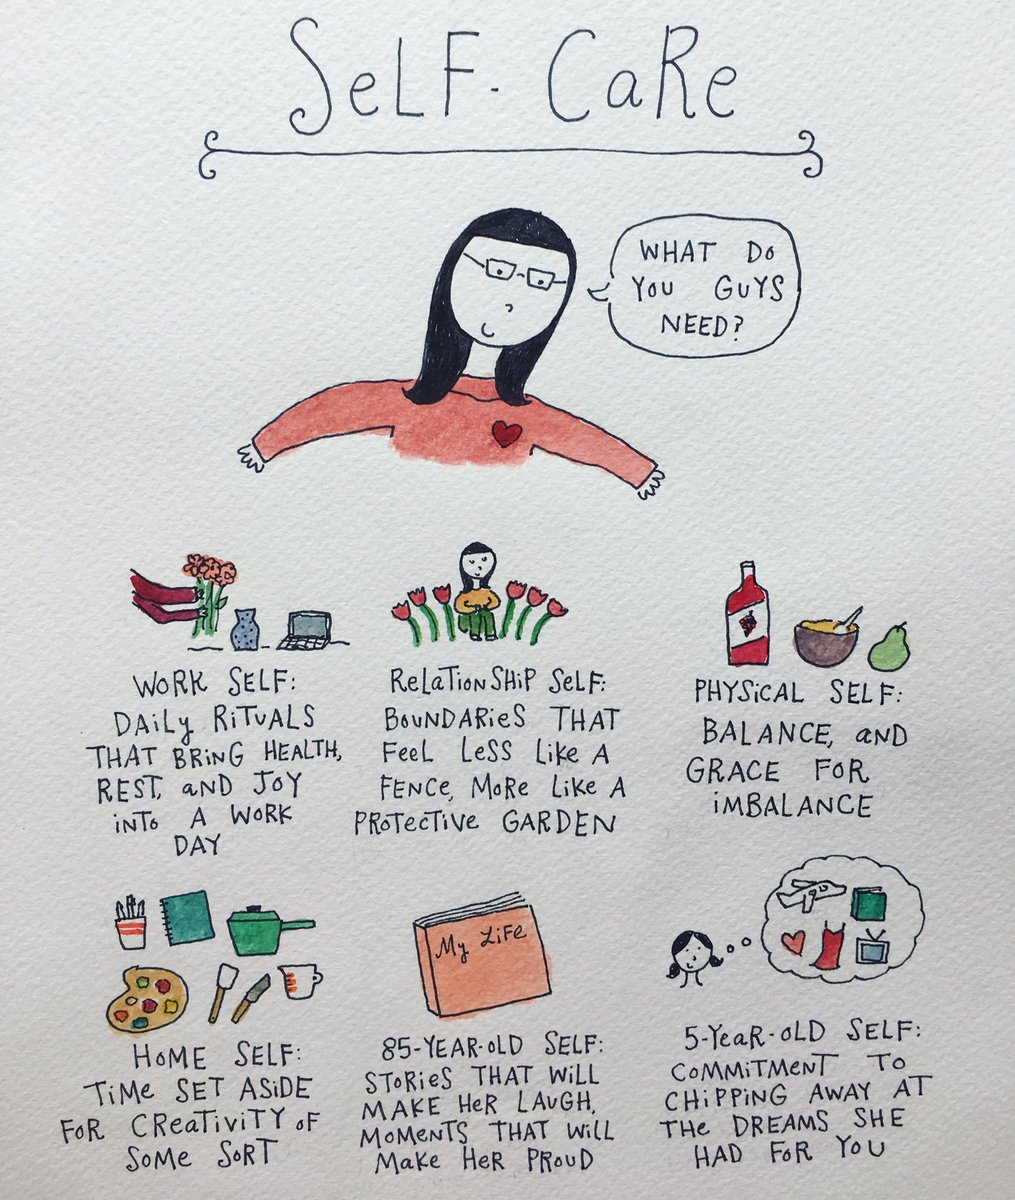 SeLF-CaRe
WHAT Do
YoU GUYS
NEED?
WoRK SELF:
DAiLy RiTUALS
THAT BRiNG HEALTH,
REST, aND JOY
iNTo A WoRK
DAY
ReLaTioNSHiP SeLF:
BoUNDARieS THAT
FeeL LeSS Like A
FeNCE, MoRe LiKE A
PRoTecTiVe GARDEN
PHYSiCAL SELF:
BALANCE, aND
GRACE FoR
iMBALANCE
HoME SELF:
TiME SET ASiDE
FoR CReaTiViTY oF
SoMe SoRT
My LiFe
85-YEAR-oLD SELF:
SToRieS THAT WiLL
MAKE HeR LAUGH,
MoMeNTS THAT WiLL
MaKe HeR PRoUD
5-YeaR-oLD SELF:
CoMMiTMeNT To
CHiPPiNG AWAY AT
THe DREAMS SHe
HAD FoR YoU